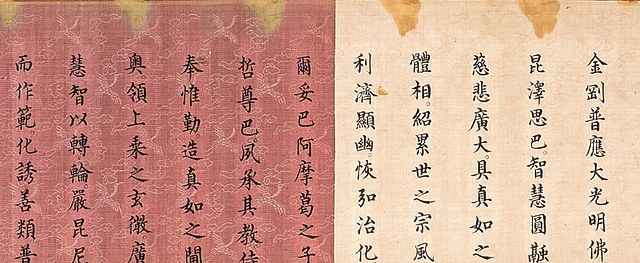 金剛普應大光明佛
昆澤思巴。智慧圓融
慈悲廣大。具真如之
體相。紹累世之宗風
利濟顯幽。恢弘治化
爾妥巴阿摩葛之子
哲尊巴夙承其教侍
奉惟勤造真如之閫
奧。領上乘之玄微廣
慧智以轉輪。嚴昆尼
而作範。化誘善類普